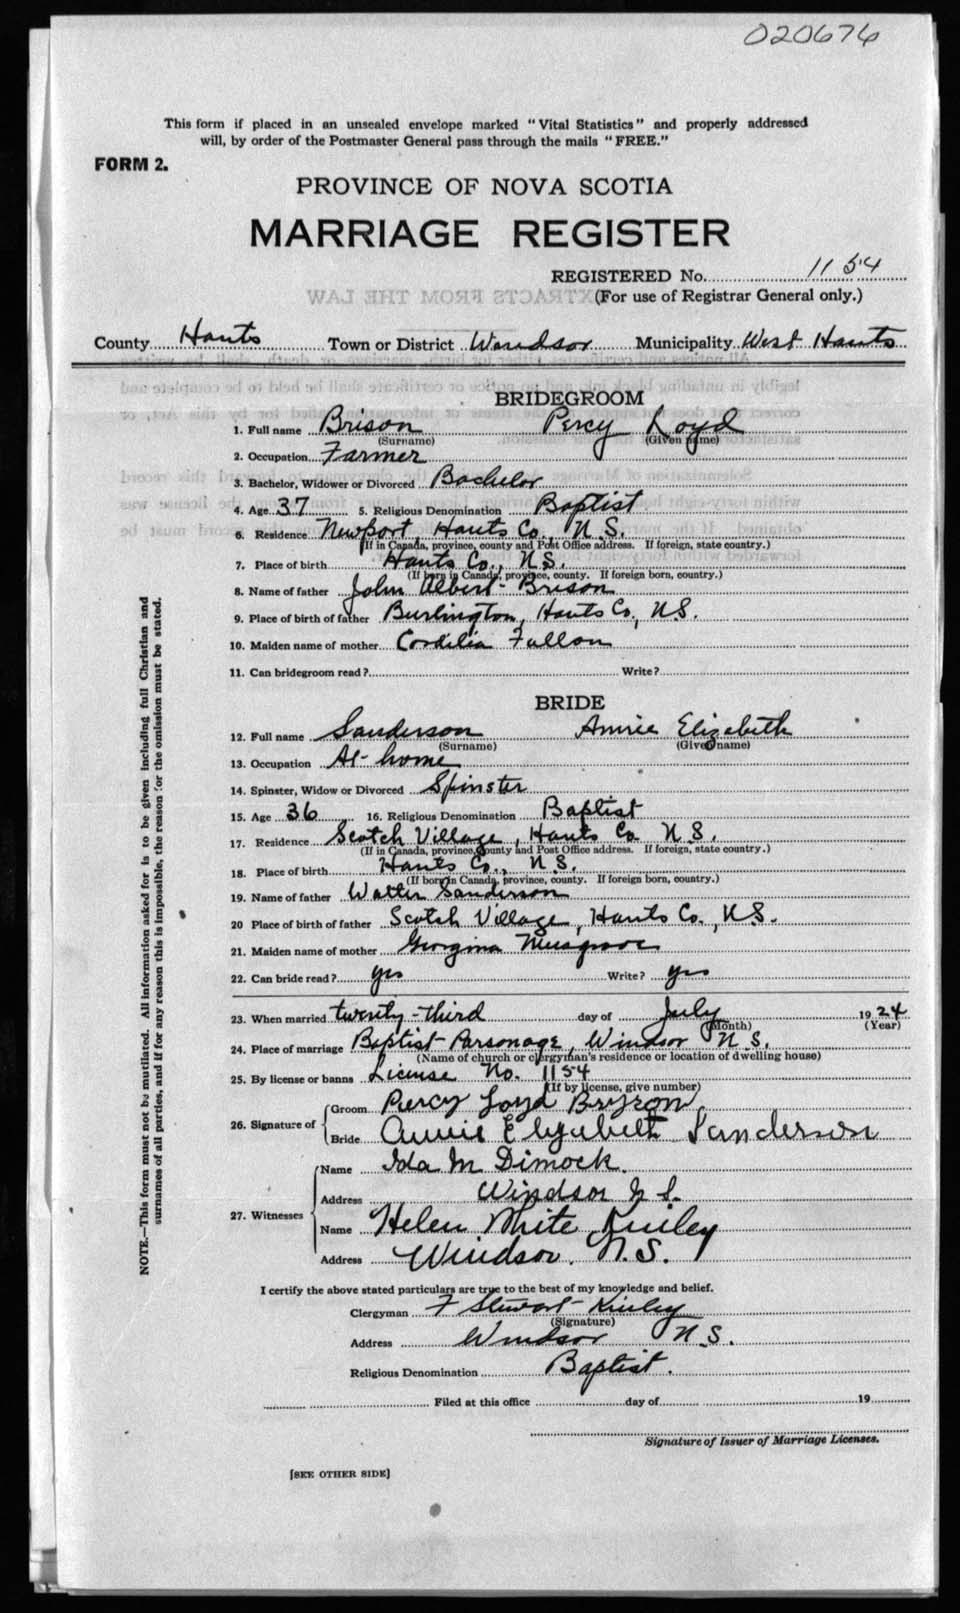 020676
This form if placed in an unsealed envelope marked "Vital Statistics" and properly addressed
will, by order of the Postmaster General pass through the mails "FREE."
FORM 2.
PROVINCE OF NOVA SCOTIA
MARRIAGE REGISTER
REGISTERED No. 1154
(For use of Registrar General only.)
County Hants Town or District Windsor Municipality West Hants
BRIDEGROOM
1. Full name Brison Percy Loyd
(Surname) (Given name)
2. Occupation Farmer
3. Bachelor, Widower or Divorced Bachelor
4. Age 37 5. Religious Denomination Baptist
6. Residence Newport, Hants Co., N.S.
(If in Canada, province, county and Post Office address. If foreign, state country.)
7. Place of birth Hants Co., N.S.
(If born in Canada, province, county. If foreign born, country.)
8. Name of father John Albert Brison
9. Place of birth of father Burlington, Hants Co., N.S.
10. Maiden name of mother Cordelia Fallon
11. Can bridegroom read? Write?
BRIDE
12. Full name Sanderson Annie Elizabeth
(Surname) (Given name)
13. Occupation At home
14. Spinster, Widow or Divorced Spinster
15. Age 36 16. Religious Denomination Baptist
17. Residence Scotch Village, Hants Co. N.S.
(If in Canada, province, county and Post Office address. If foreign, state country.)
18. Place of birth Hants Co., N.S.
(If born in Canada, province, county. If foreign born, country.)
19. Name of father Walter Sanderson
20 Place of birth of father Scotch Village, Hants Co., N.S.
21. Maiden name of mother Georgina Musgrove
22. Can bride read? yes Write? yes
23. When married twenty-third day of July 1924
(Month) (Year)
24. Place of marriage Baptist Parsonage, Windsor N.S.
(Name of church or clergyman's residence or location of dwelling house)
25. By license or banns License No. 1154
(If by license, give number)
26. Signature of
Groom Percy Loyd Bryson
Bride Annie Elyzabeth Sanderson
27. Witnesses
Name Ida M Dimock.
Address Windsor N S.
Name Helen White Kinley
Address Windsor. N.S.
I certify the above stated particulars are true to the best of my knowledge and belief.
Clergyman F Stewart Kinley
(Signature)
Address Windsor N.S.
Religious Denomination Baptist.
Filed at this office day of 19
Signature of Issuer of Marriage Licenses.
[SEE OTHER SIDE]
NOTE.—This form must not be mutilated. All information asked for is to be given including full Christian and
surnames of all parties, and if for any reason this is impossible, the reason for the omission must be stated.